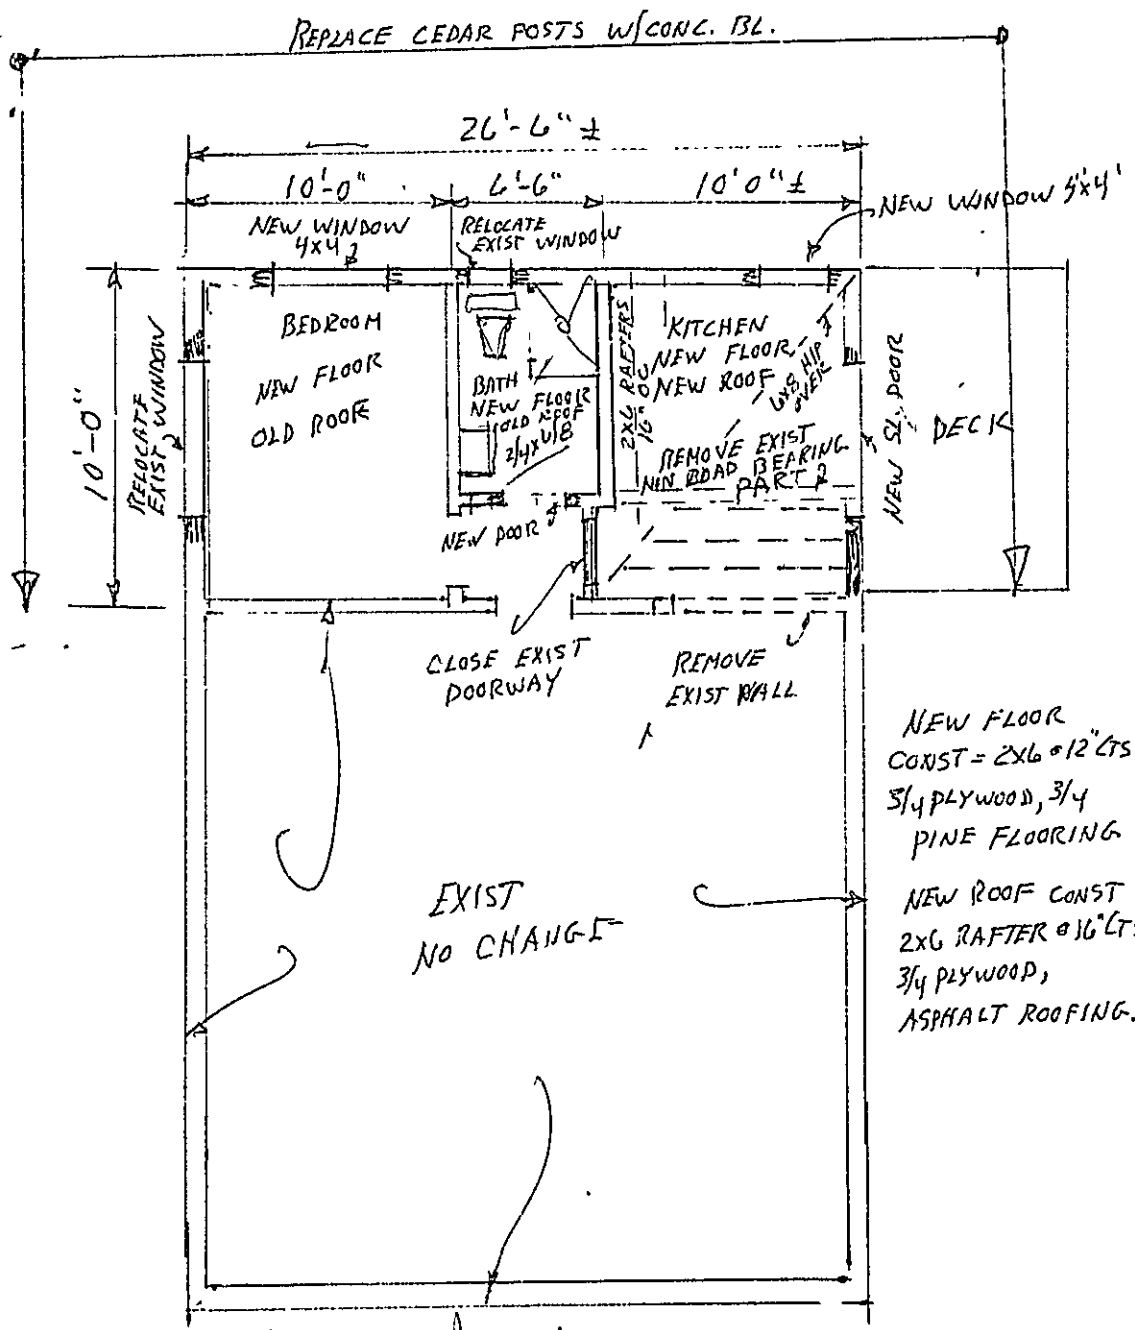 REPLACE CEDAR POSTS W/CONC. BL.
26'-6" ±
10'-0"
6'-6"
10'0" ±
NEW WINDOW
4x4
RELOCATE
EXIST WINDOW
NEW WINDOW 5'x4'
10'-0"
RELOCATE
EXIST WINDOW
BEDROOM
NEW FLOOR
OLD ROOF
BATH
NEW FLOOR
OLD ROOF
2/4x6/8
2X6 RAFTERS
16" OC
KITCHEN
NEW FLOOR
NEW ROOF
6x8 HIP
OVER
REMOVE EXIST
NON LOAD BEARING
PART
NEW SL. DOOR
DECK
NEW DOOR
CLOSE EXIST
DOORWAY
REMOVE
EXIST WALL
NEW FLOOR
CONST = 2X6 @ 12" CTS
3/4 PLYWOOD, 3/4
PINE FLOORING
NEW ROOF CONST
2X6 RAFTER @ 16" CTS
3/4 PLYWOOD,
ASPHALT ROOFING.
EXIST
NO CHANGE